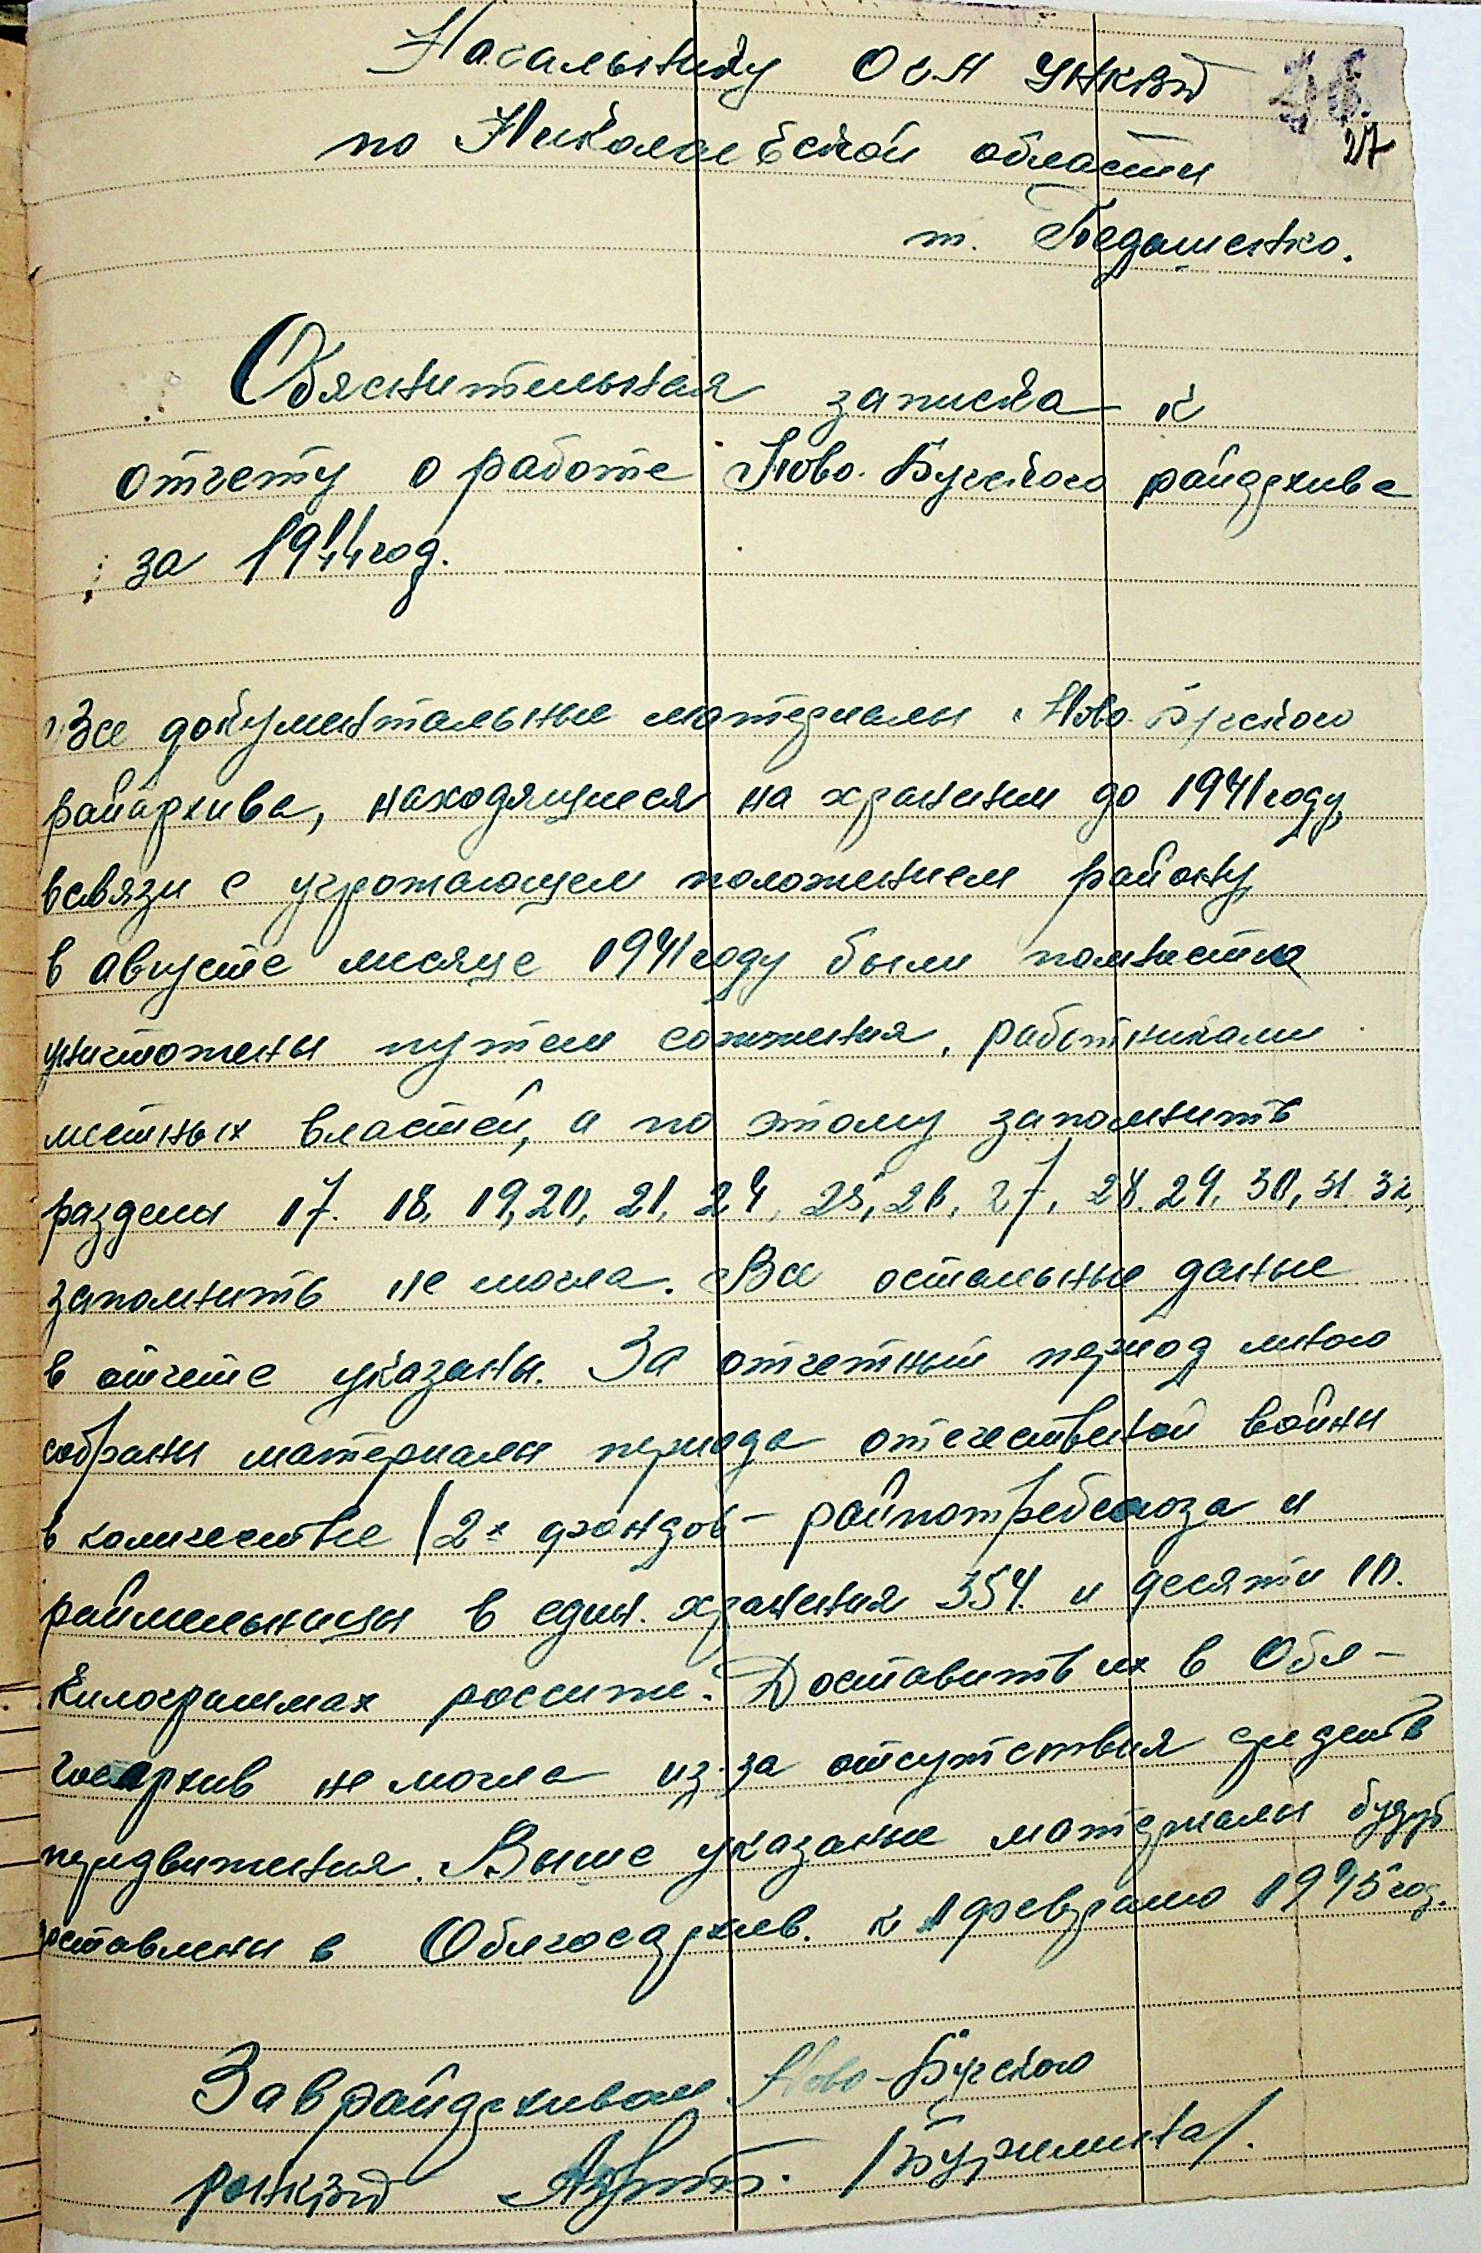 Начальнику ОГА УНКВД
27
по Николаевской области
т. Бедашенко.
Обяснительная записка к
отчету о работе Ново-Бугского райархива
за 1944 год.
Все документальные материалы Ново-Бугского
райархива, находящиеся на хранении до 1941 году,
всвязи с угрожающем положением району,
в августе месяце 1941 году были полностю
уничтожены путем сожжения, работниками
местных властей, а по этому заполнить
разделы 17. 18, 19, 20, 21, 24, 25, 26, 27, 28. 29, 30, 31. 32,
заполнить не могла. Все остальные даные
в отчете указаны. За отчетный период мною
собраны материалы периода отечественой войны
в количестве 2х фондов – райпотребсоюза и
раймельницы в един. хранения 354 и десяти 10.
килограммах россыпи. Доставить их в Обл-
госархив не могла из-за отсутствия средств
передвижения. Выше указаные материалы будут
доставлены в Облгосархив. к 1 февралю 1945 год.
Заврайархивом Ново-Бугского
РОНКВД /Бурлина/.